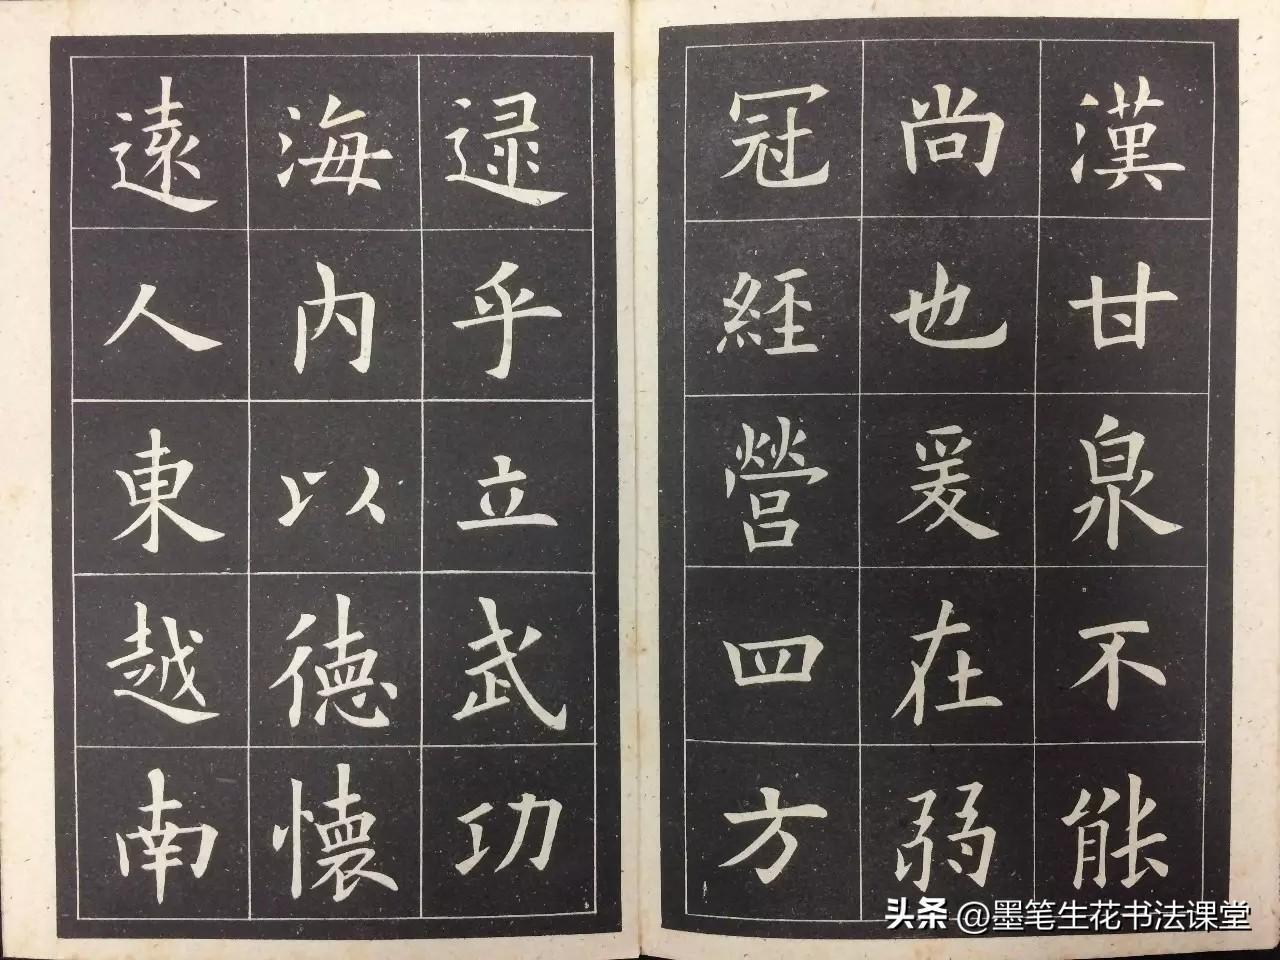 漢甘泉不能
尚也爰在弱
冠經營四方
逯乎立武功
海內以德懷
遠人東越南
头条 @墨笔生花书法课堂